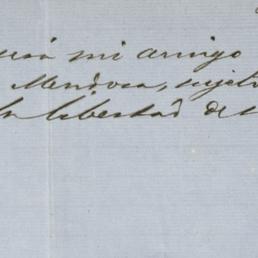 mi amigo
Mendoza, sujeto
la libertad de